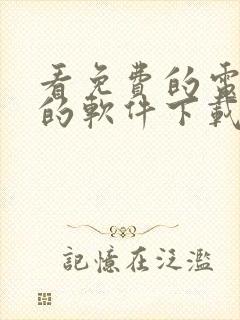 看免費的電
的軟件下載
記憶在泛濫